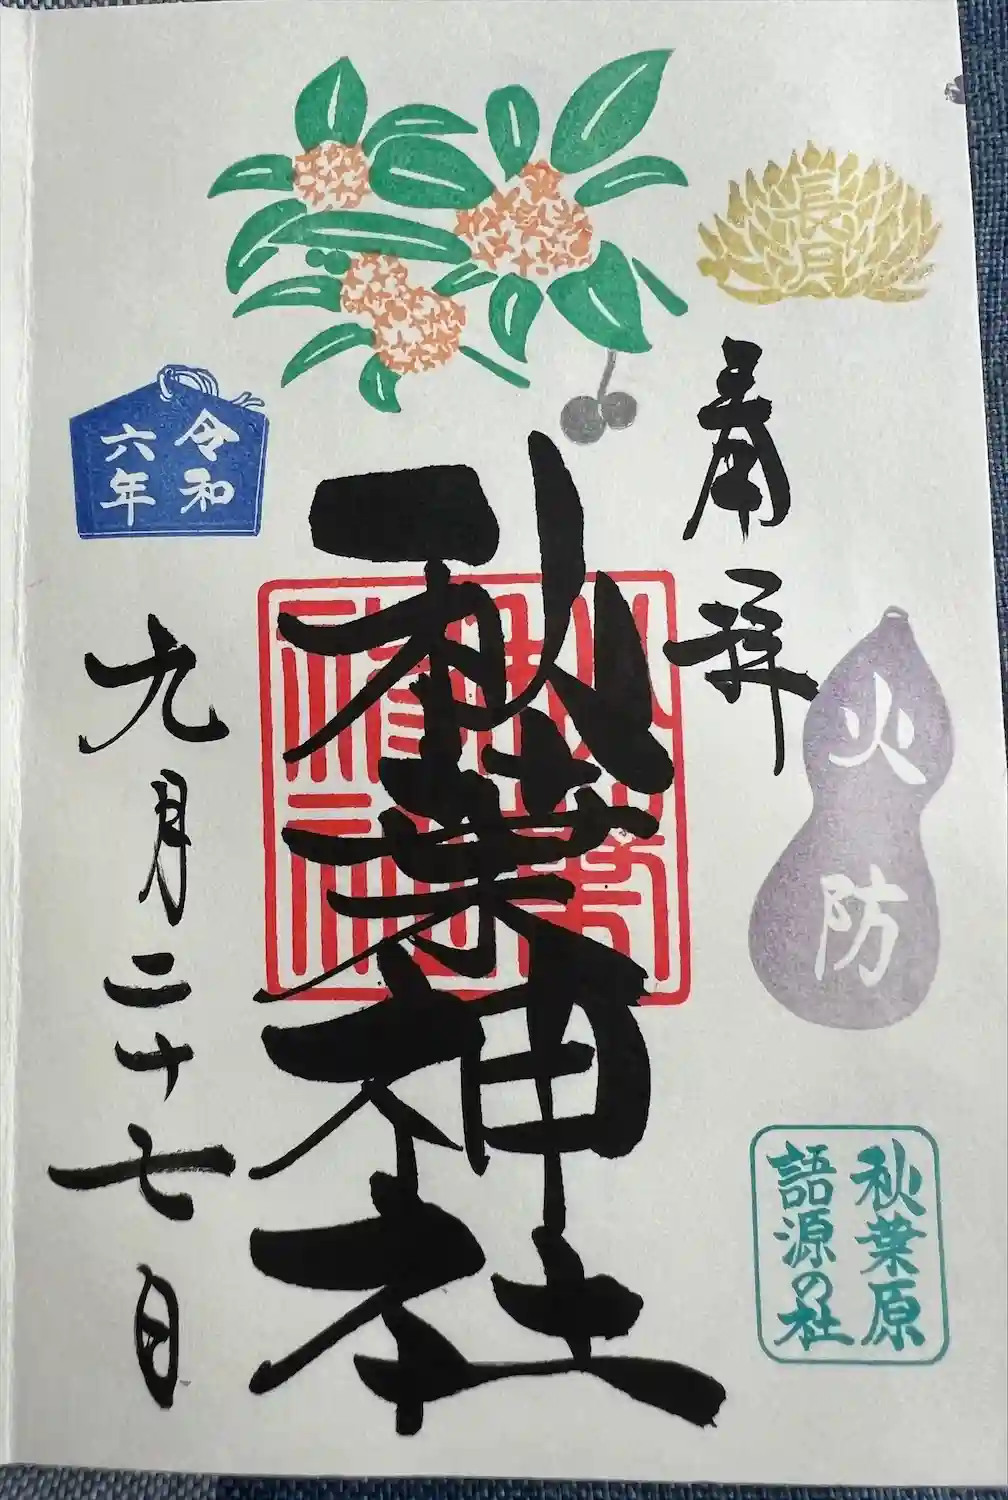 長月
奉拝
火防
秋葉原
語源の社
秋葉神社
令和
六年
九月二十七日